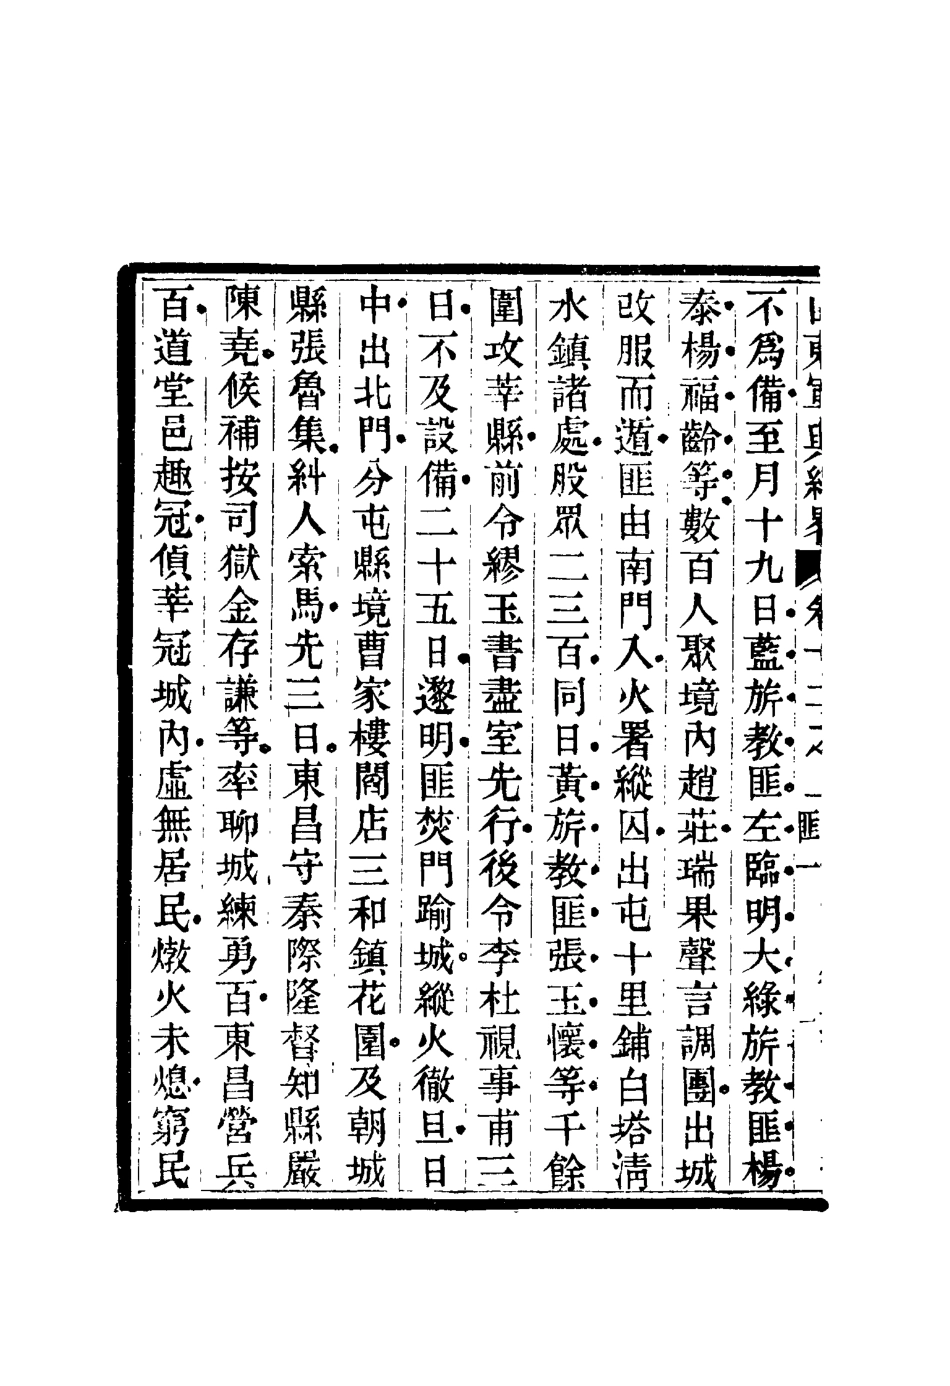 山東軍興紀畧卷十二之一 匪一
不爲備至月十九日藍旂教匪左臨明大綠旂教匪楊
泰楊福齡等數百人聚境內趙莊瑞果聲言調團出城
改服而遁匪由南門入火署縱囚出屯十里鋪白塔淸
水鎮諸處股眾二三百同日黃旂教匪張玉懷等千餘
圍攻莘縣前令繆玉書盡室先行後令李杜視事甫三
日不及設備二十五日邌明匪焚門踰城縱火徹旦日
中出北門分屯縣境曹家樓閻店三和鎮花園及朝城
縣張魯集糾人索馬先三日東昌守秦際隆督知縣嚴
陳堯候補按司獄金存謙等率聊城練勇百東昌營兵
百道堂邑趣冠偵莘冠城內虛無居民燉火未熄窮民